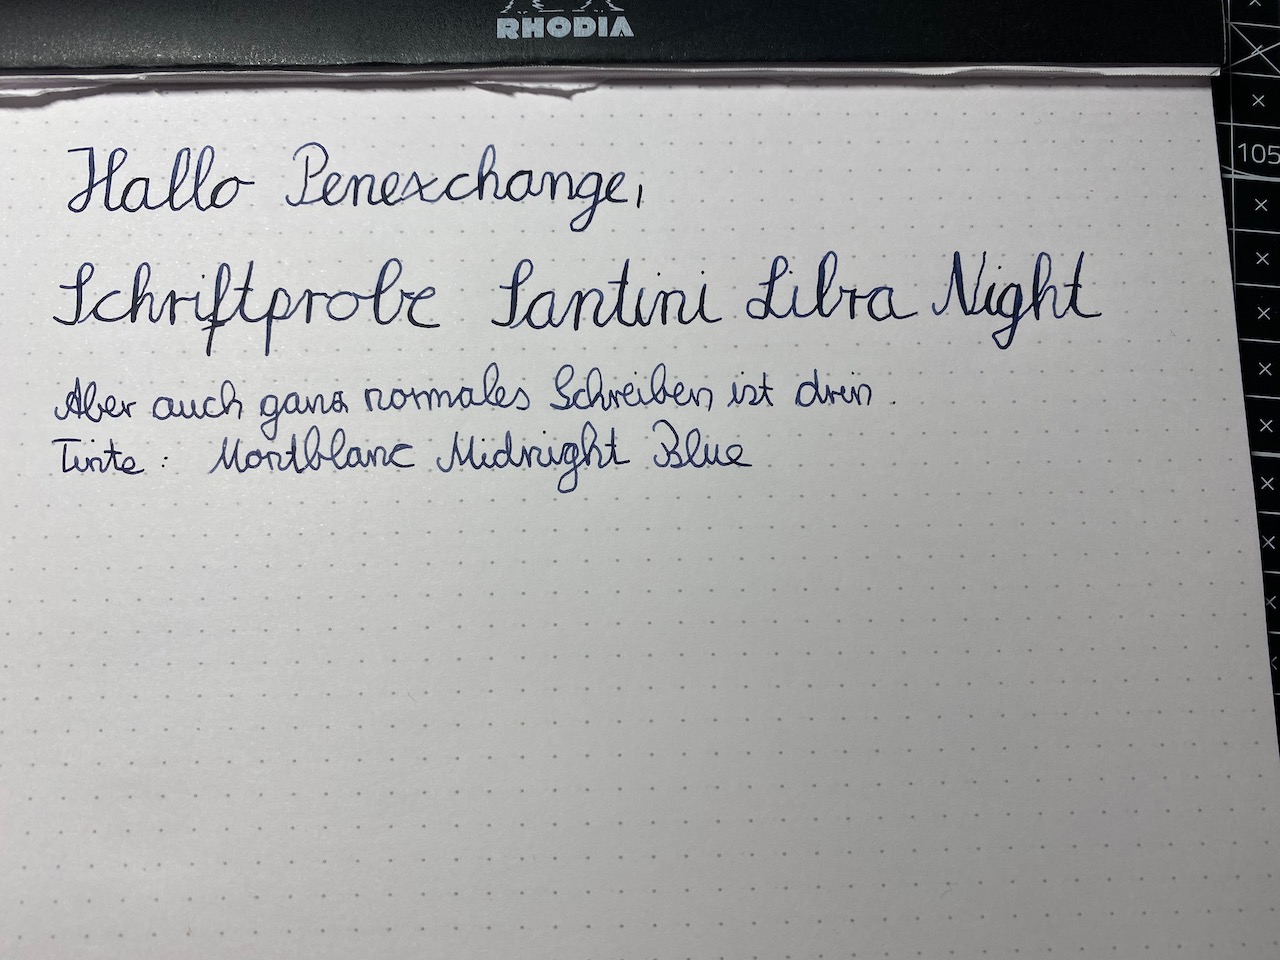 RHODIA
105
Hallo Penexchange,
Schriftprobe Santini Libra Night
Aber auch ganz normales Schreiben ist drin.
Tinte: Montblanc Midnight Blue